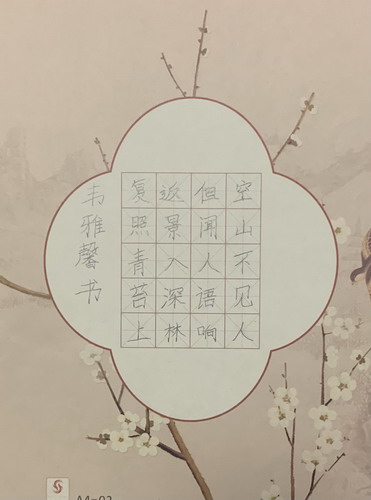 空山不见人
但闻人语响
返景入深林
复照青苔上
韦雅馨书
A4-02